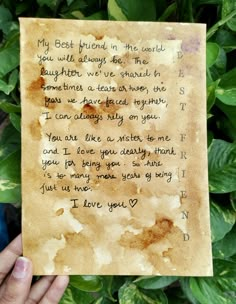 My Best friend in the world
you will always be. The
laughter we've shared &
sometimes a tear or two, the
fears we have faced together,
I can always rely on you.
You are like a sister to me
and I love you dearly, thank
you for being you. So here
is to many more years of being
just us two.
I love you♡
BEST FRIEND